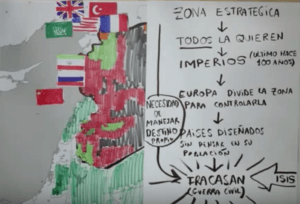 ZONA ESTRATEGICA
TODOS LA QUIEREN
IMPERIOS (ULTIMO HACE
100 AÑOS)
EUROPA DIVIDE LA ZONA
PARA CONTROLARLA
NECESIDAD
DE
MANEJAR
DESTINO
PROPIO
PAISES DISEÑADOS
SIN PENSAR EN SU
POBLACIÓN
FRACASAN
(GUERRA CIVIL)
ISIS